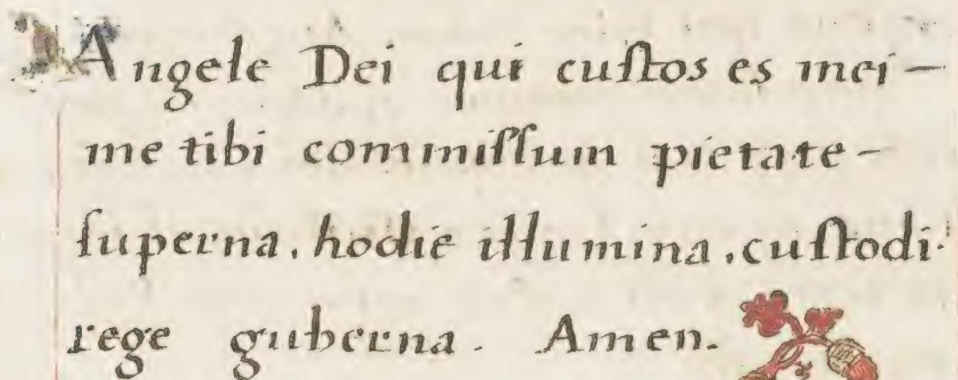 Angele Dei qui cuſtos es mei –
me tibi commiſſum pietate –
ſuperna. hodie illumina. cuſtodi.
rege guberna. Amen.